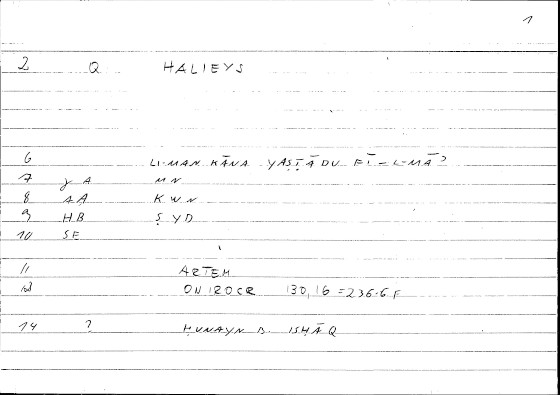 1
2 Q HALIEYS
6 LI-MAN KĀNA YAṢṬĀDU FĪ-L-MĀʾ
7 y A MN
8 AA KWN
9 HB ṢYD
10 SE
11 ARTEM
12 ONIROCR 130,16 = 236.6 F
14 ? ḤUNAYN B. ISḤĀQ